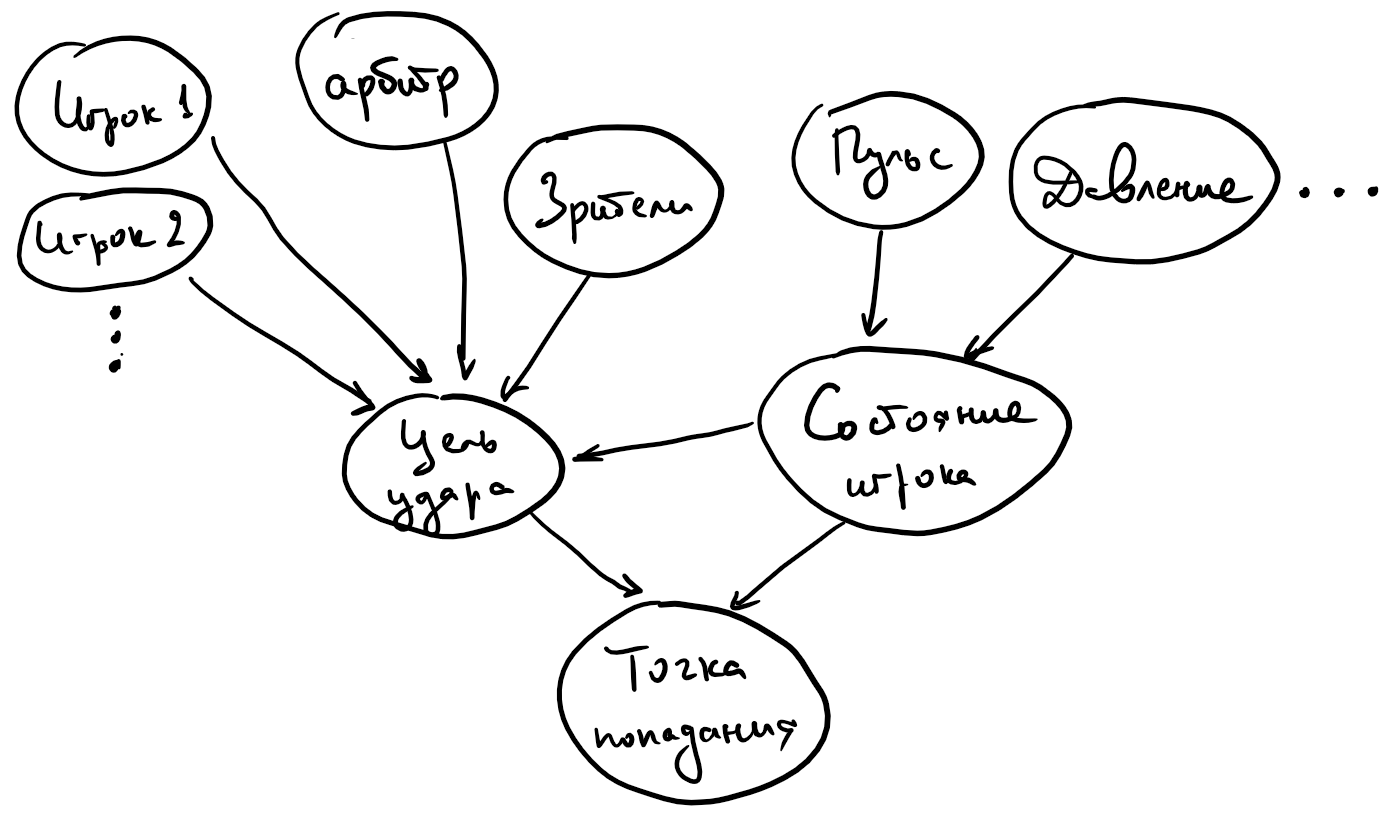 Игрок 1
арбитр
Игрок 2
Зрители
Пульс
Давление ...
Цель
удара
Состояние
игрока
Точка
попадания